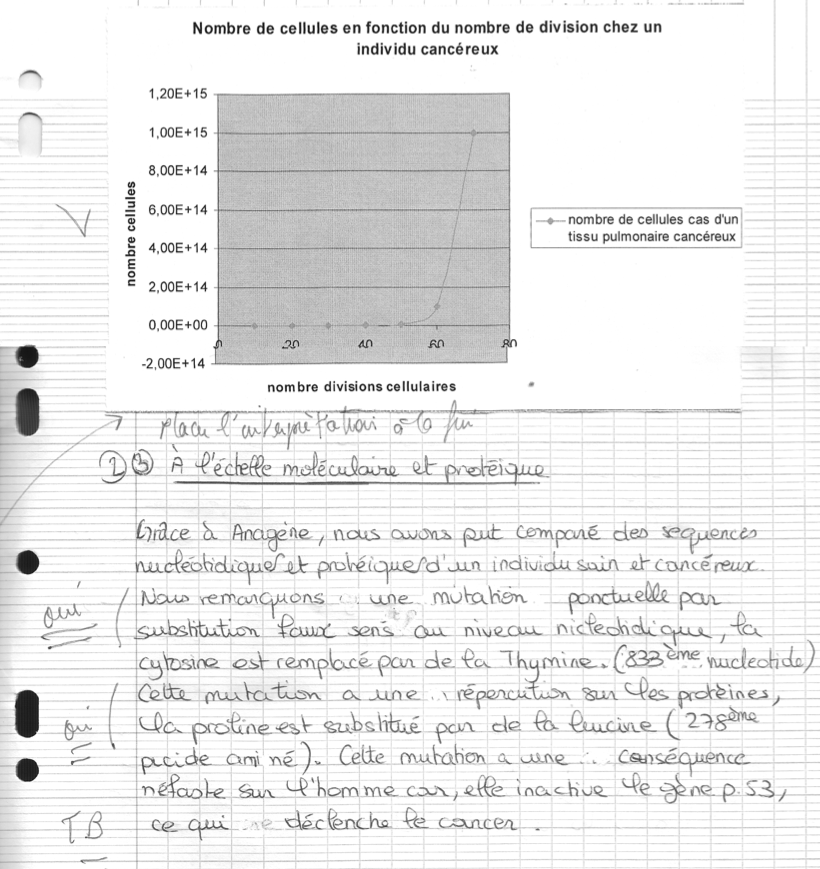 Nombre de cellules en fonction du nombre de division chez un
individu cancéreux
1,20E+15
1,00E+15
8,00E+14
6,00E+14
4,00E+14
2,00E+14
0,00E+00
-2,00E+14
0 20 40 60 80
nombre cellules
nombre divisions cellulaires
nombre de cellules cas d'un
tissu pulmonaire cancéreux
placer l'interprétation à la fin
② ③ À l'échelle moléculaire et protéique
Grâce à Anagène, nous avons put comparé des sequences
nucléotidiques et protéiques d'un individu sain et cancéreux.
oui
Nous remarquons une mutation ponctuelle par
substitution faux sens au niveau nicleotidique, la
cytosine est remplacé par de la Thymine. (833ème nucleotide)
Cette mutation a une répercution sur les protéines,
oui
la proline est substitué par de la leucine (278ème
acide aminé). Cette mutation a une conséquence
néfaste sur l'homme car, elle inactive le gène p.53,
TB
ce qui déclenche le cancer.